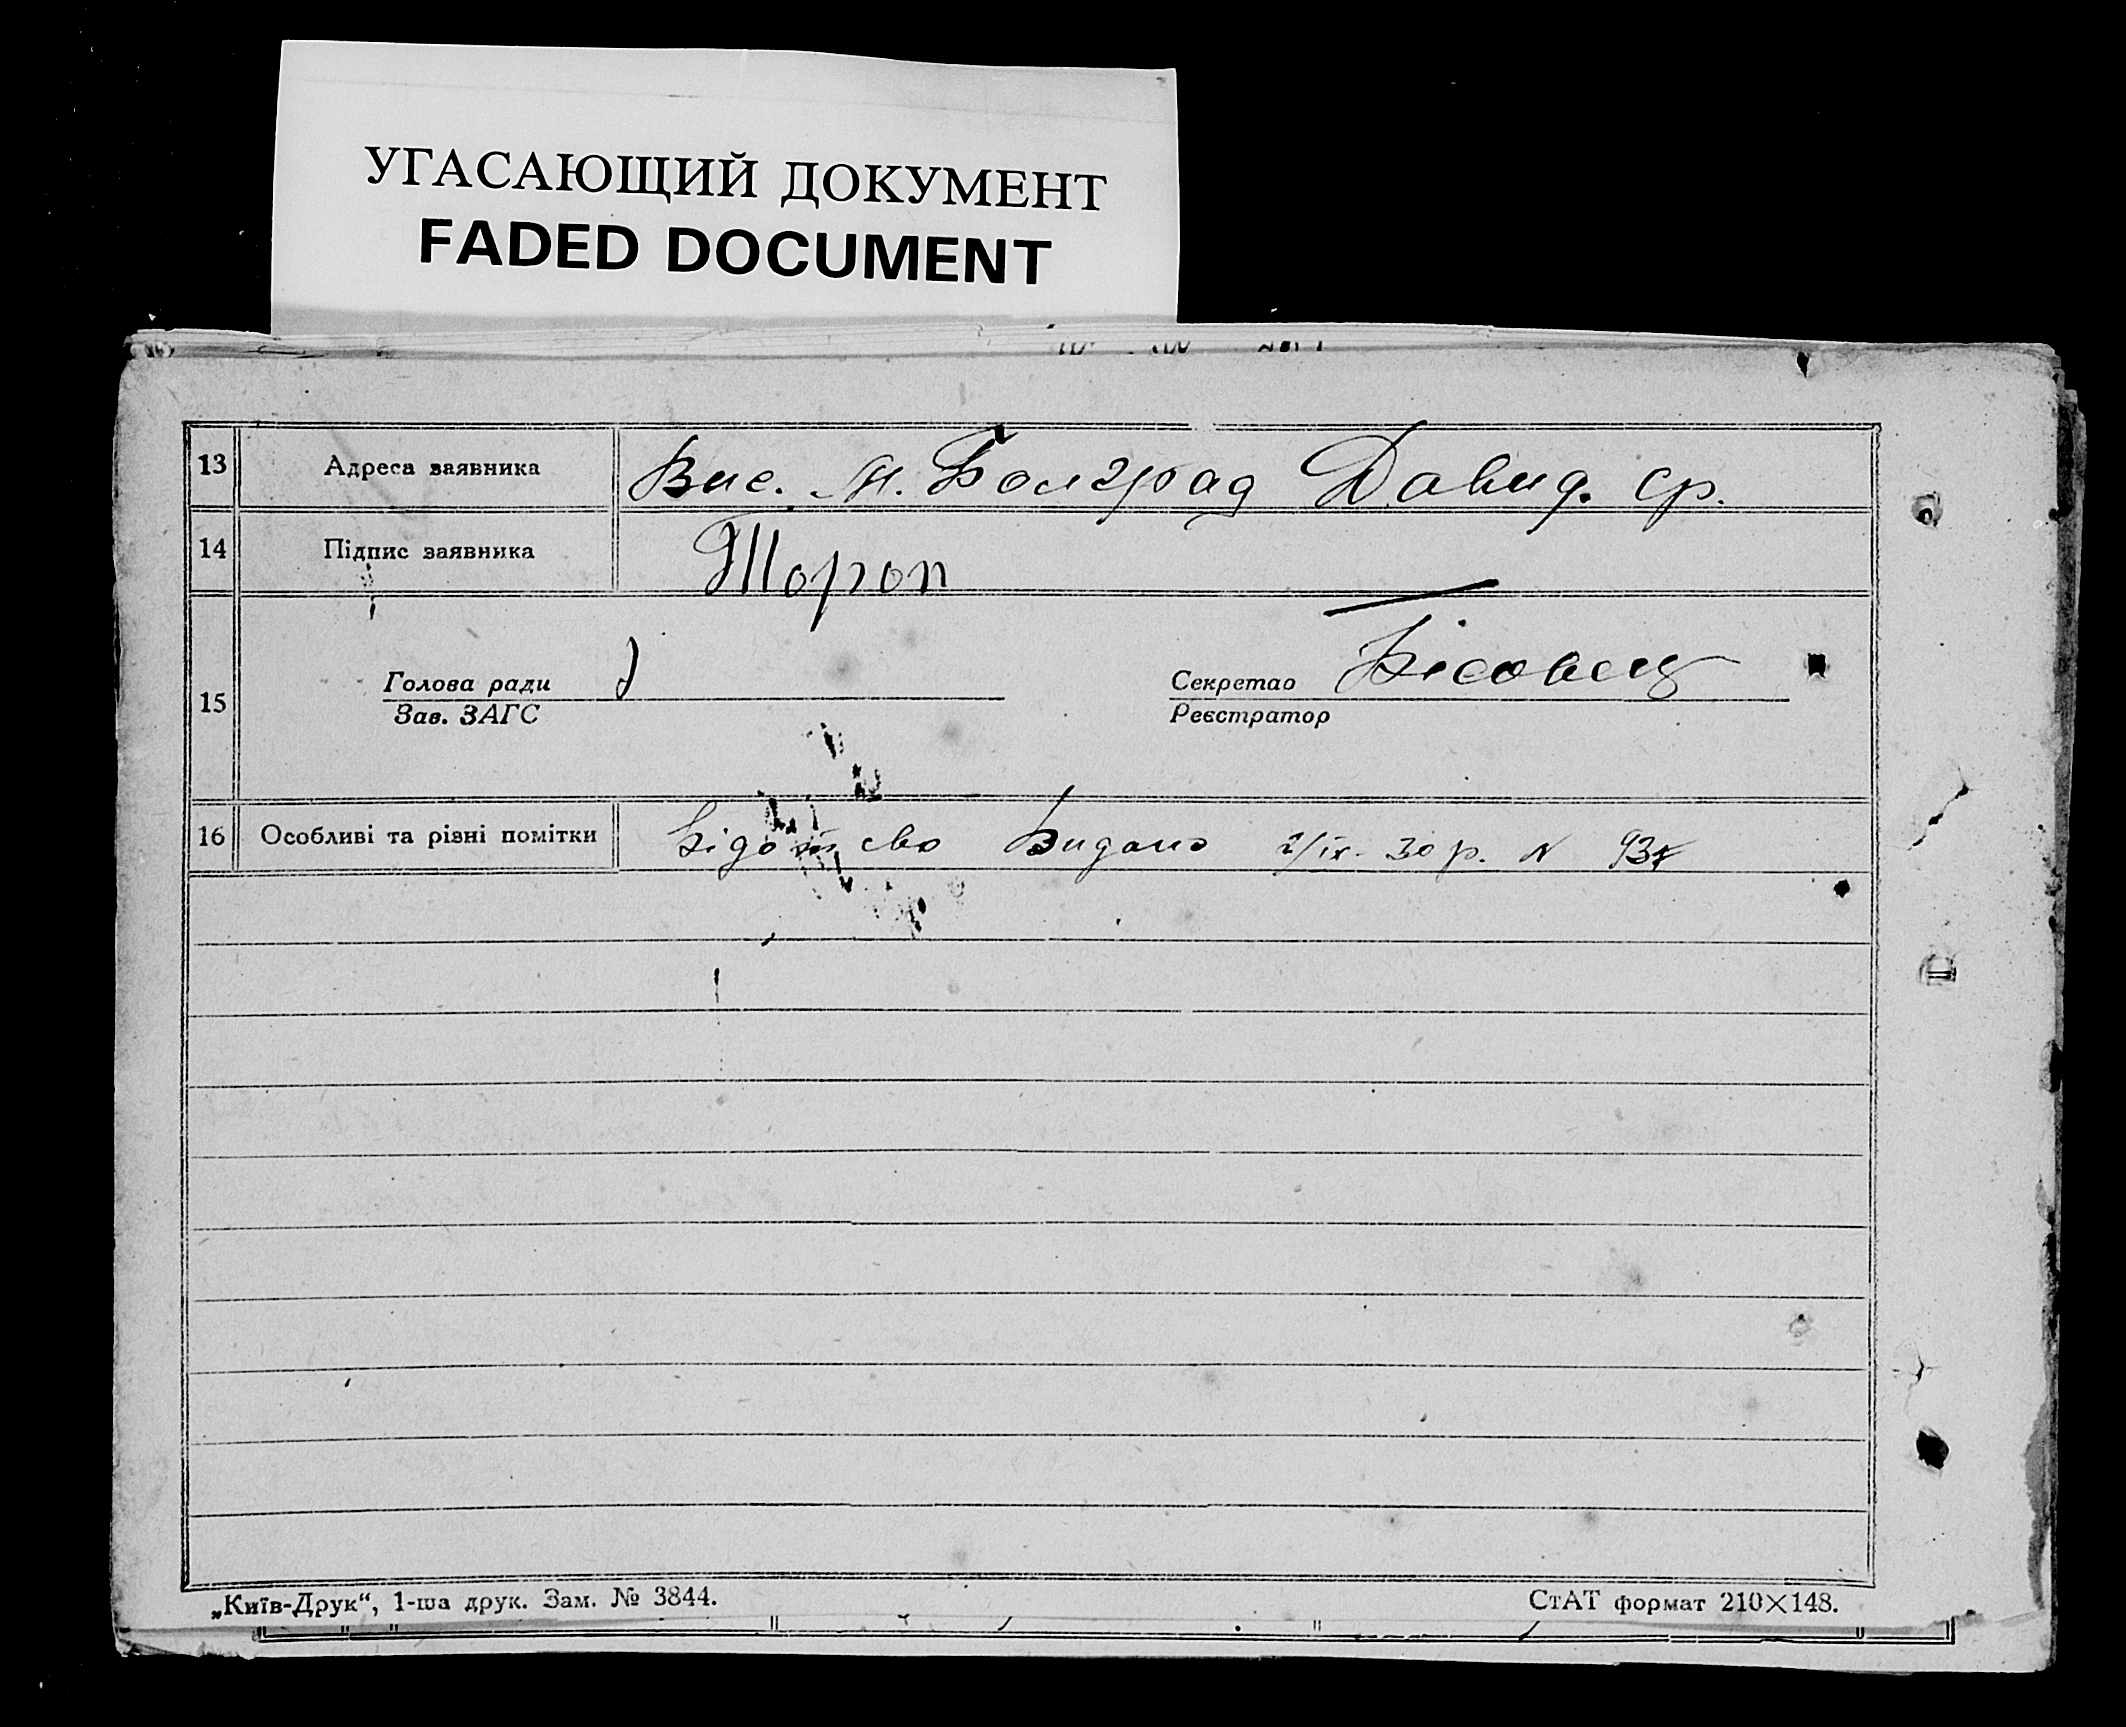 УГАСАЮЩИЙ ДОКУМЕНТ
FADED DOCUMENT
13 Адреса заявника Вис. м. Болград Давид. ср.
14 Підпис заявника Тороп
15 Голова ради Секретар Бісовец
Зав. ЗАГС Реєстратор
16 Особливі та різні помітки видано 2/ІХ. 30 р. N
„Київ-Друк“, 1-ша друк. Зам. № 3844. СтАТ формат 210×148.